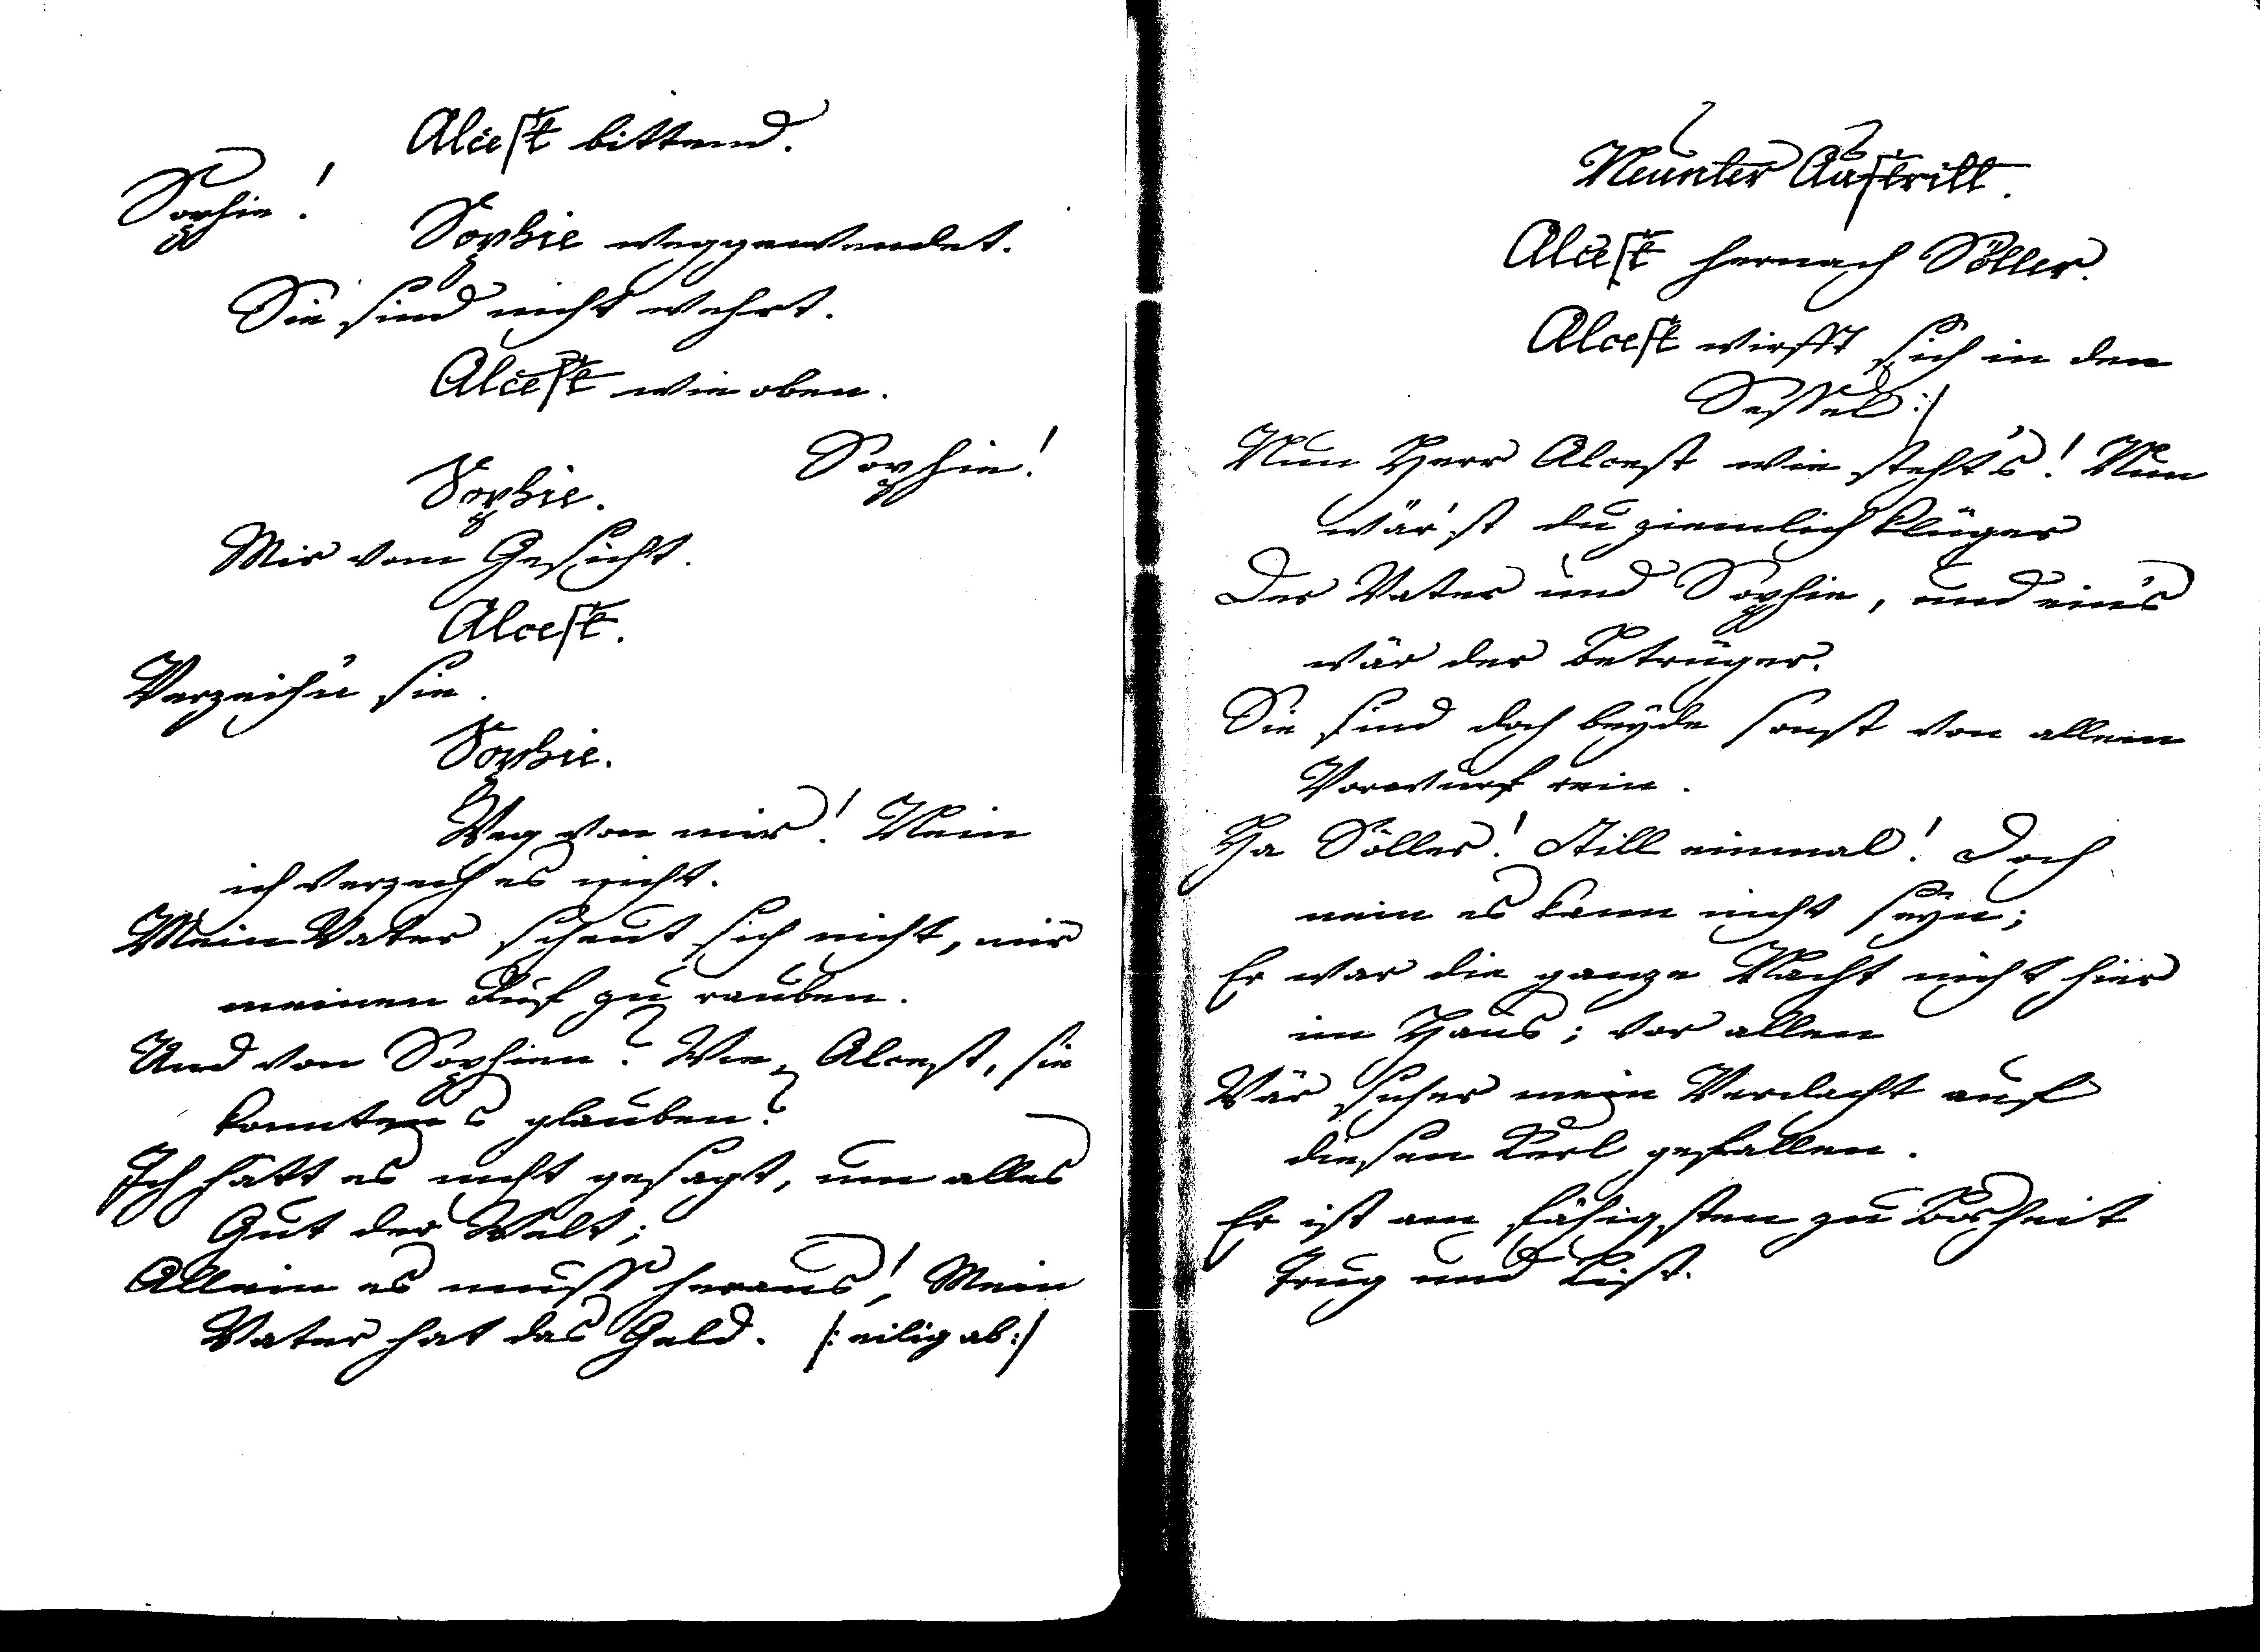 Alcest bittend.
Sophie!
Sophie weggewendet.
Sie sind nicht wehrt.
Alcest wie oben.
Sophie!
Sophie.
Mir vom Gesicht.
Alcest.
Verzeihn sie.
Sophie.
Weg von mir! Nein
ich verzeih es nicht.
Mein Vater scheut sich nicht, mir
meinen Ruf zu rauben.
Und von Sophien? Wie, Alcest, sie
konntens glauben?
Ich hätt es nicht gesagt, um alles
Gut der Welt;
Allein es muss heraus! Mein
Vater hat das Geld. /: eilig ab :/
Neunter Auftritt.
Alcest hernach Söller.
Alcest wirfft sich in den
Sessel :/
Nun Herr Alcest wie steht's! Nun
wär'st du ziemlich klüger
Der Vater und Sophie, und ein's
wär der Betrüger.
Sie sind doch beyde sonst von allem
Vorwurf rein.
Ha Söller! Still einmal! Doch
nein es kann nicht seyn;
Er war die ganze Nacht nicht hier
im Haus; vor allen
Wär sicher mein Verdacht auf
diesen Kerl gefallen.
Er ist am fähigsten zu Bosheit
Trug und List.